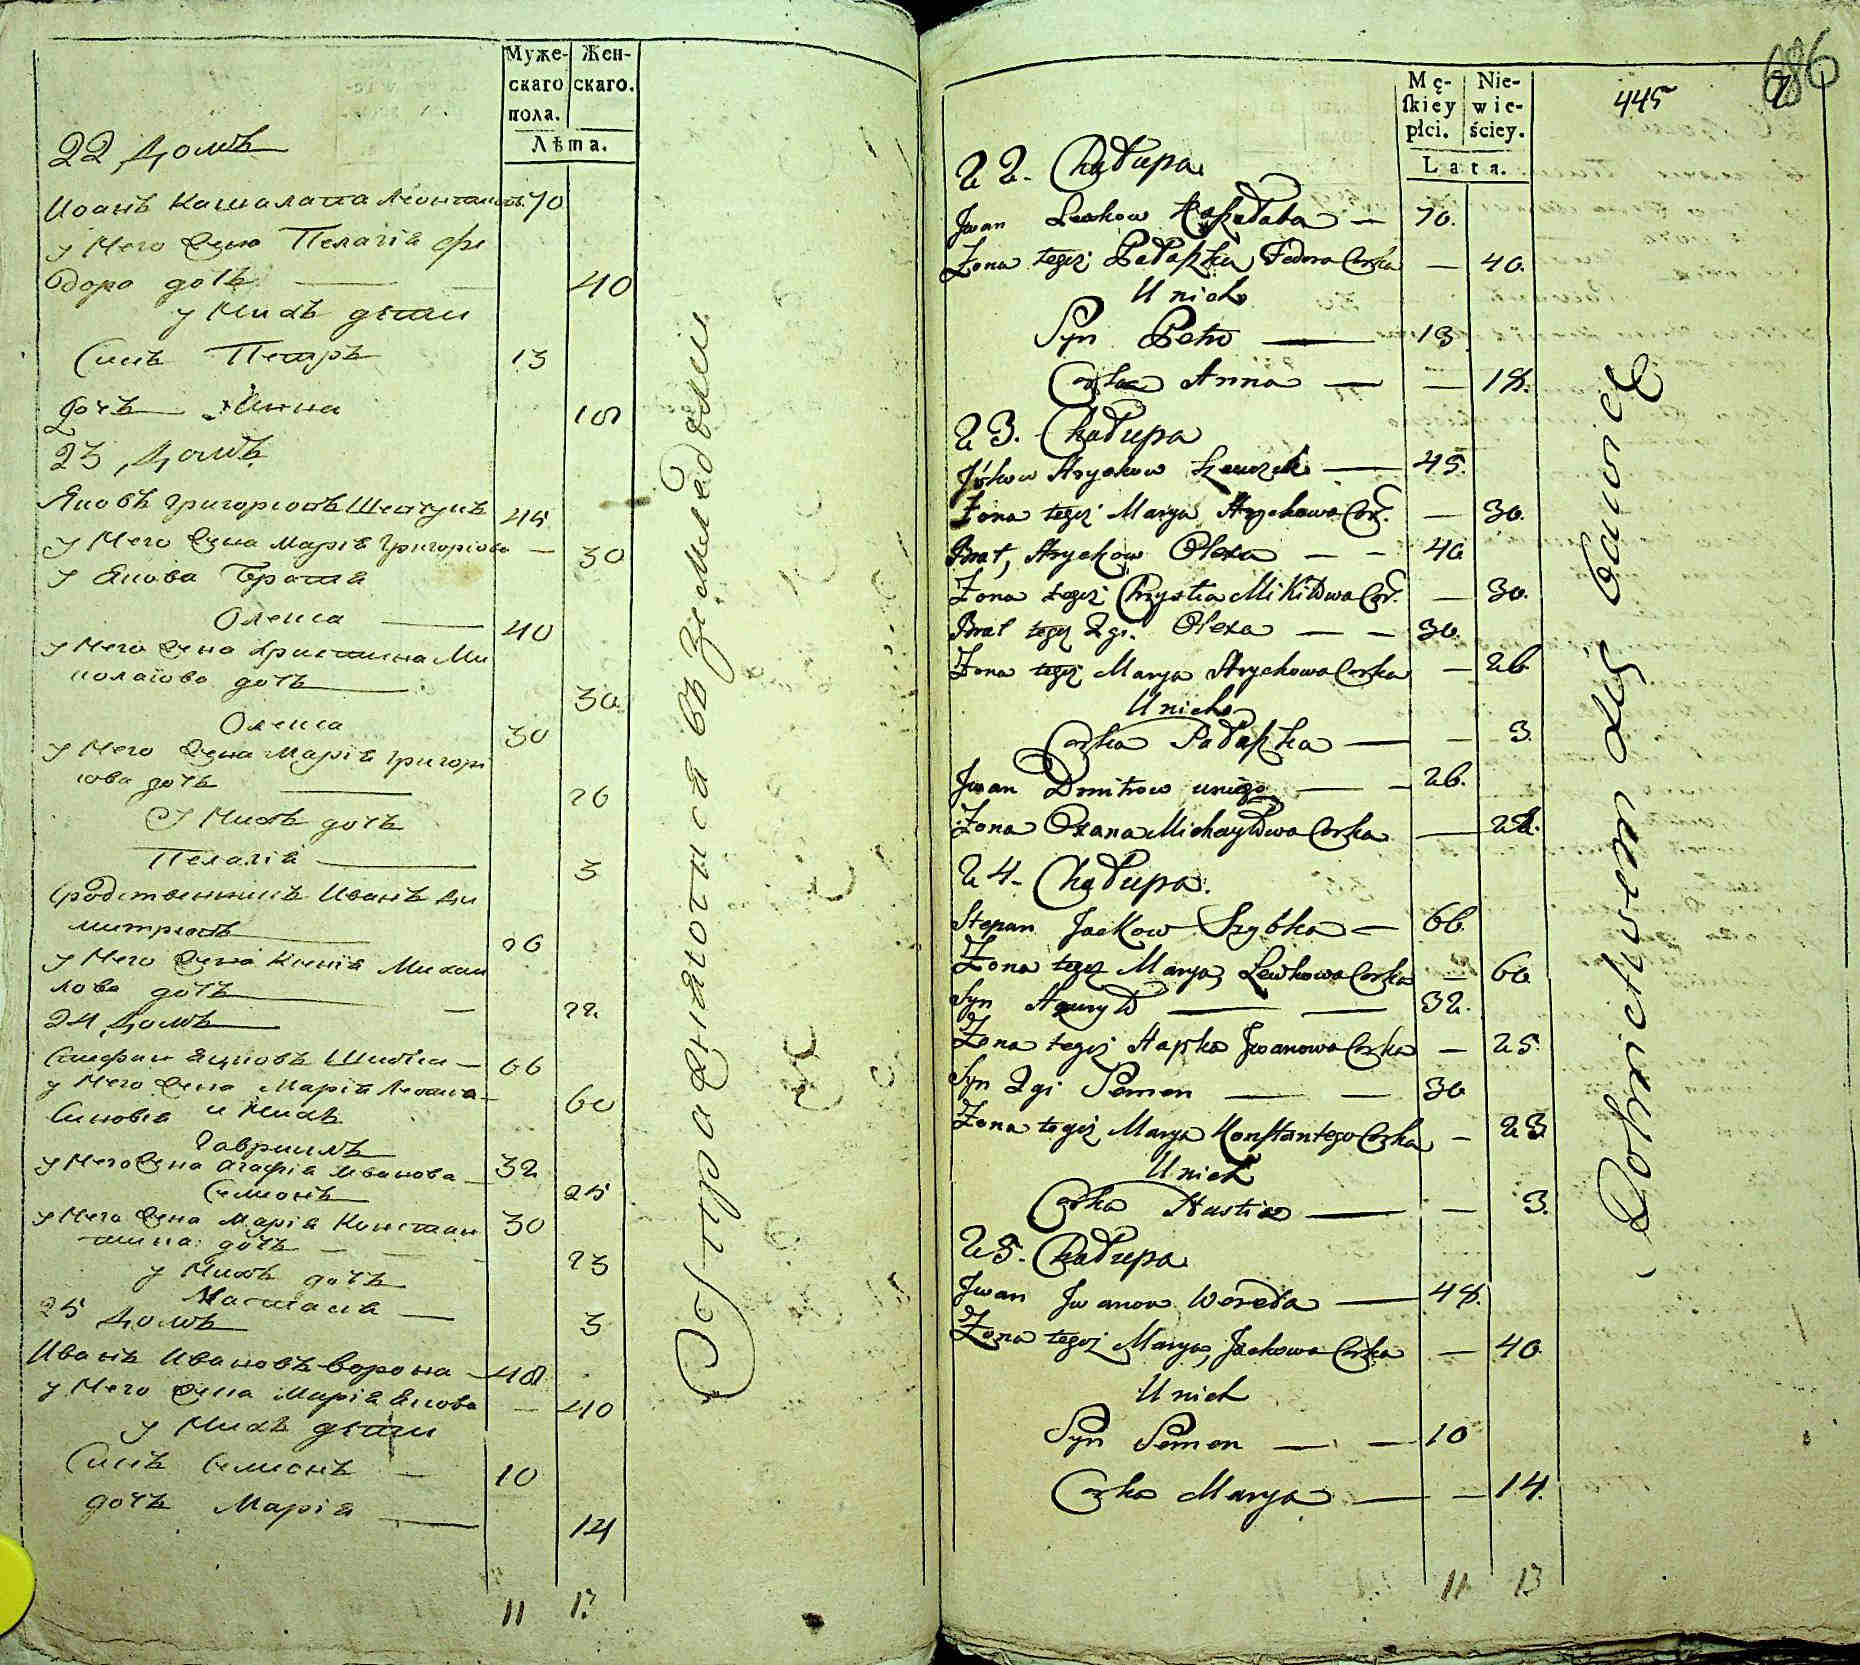 Муже-
скаго
пола.
Жен-
скаго.
Лѣта.
22 домъ
Иоанъ Кашалапа Леонтіовъ 70
у него жена Пелагія Фе
дора дочь 40
у нихъ дѣти
Синъ Петръ 13
дочь Анна 18
23 домъ
Яковъ Григоріовъ Шевчукъ 45
у него жена Марія Григоріова 30
у Якова брата
Олекса 40
у него жена Христина Ми
колаіова дочь 30
Олекса 30
у него жена Марія Григорі
іова дочь 26
У нихъ дочь
Пелагія 3
Сродственникъ Иванъ Ди
митріовъ 26
у него жена Ксенія Михаи
лова дочь 22
24 домъ
Стефан Яцковъ Шибка 66
у него жена Марія 60
Синовья и нихъ
Гавриилъ 32
у него жена Агафія Иванова 25
Симеонъ 30
у него жена Марія Констан
тина дочь 23
у нихъ дочь
Настасія 3
25 домъ
Иванъ Ивановъ Ворона 48
у него жена Марія Якова 40
у нихъ дѣти
Синъ Симеонъ 10
дочь Марія 14
11 13
Упражняются въ земледоліи
686
445
Mę-
ſkiey
płci.
Nie-
wie-
ściey.
Lata.
22. Chałupa
Jwan Lewkow Kaszałata — 70.
Żona tegoż Pałaszka Fedora Corka — 40.
U nich
Syn Petro — 13
Corka Anna — 18.
23. Chałupa
Jáków Hryckow Szewczuk — 45.
Żona tegoż Marya Hryckowa Cor. — 30.
Brat, Hryckow Olexa — 40
Żona tegoż Chrystia Mikitowa Cor. — 30.
Brat tegoż 2gi. Olexa — 30.
Żona tegoż Marya Hryckowa Corka — 26
U nich
Corka Pałaszka — 3.
Jwan Dmitrow u niego — 26.
Żona Oxana Michayłowa Corka — 22.
24. Chałupa.
Stepan Jackow Szybka — 66.
Żona tegoż Marya, Lewkowa Corka — 60
Syn Hawryło — 32.
Żona tegoż Hapka Jwanowa Corka — 25.
Syn 2gi Semen — 30
Żona tegoż Marya Konstantego Corka — 23
U nich
Corka Nastia — 3.
25. Chałupa
Jwan Jwanow Worona — 48.
Żona tegoż Marya, Jackowa Corka — 40
U nich
Syn Semen — 10
Corka Marya — 14.
11 13
Rolnictwem się bawią